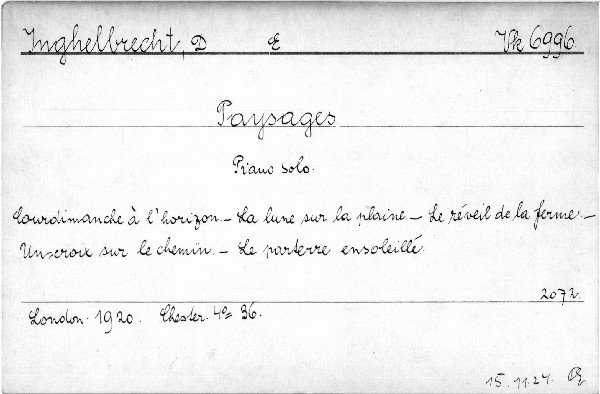 Inghelbrecht, D E Vk 6996.
Paysages
Piano solo.
Courdimanche à l'horizon. - La lune sur la plaine - Le réveil de la ferme. -
Une croix sur le chemin. - Le parterre ensoleillé.
2072.
London. 1920. Chester. 4° 36.
15. 11. 24.